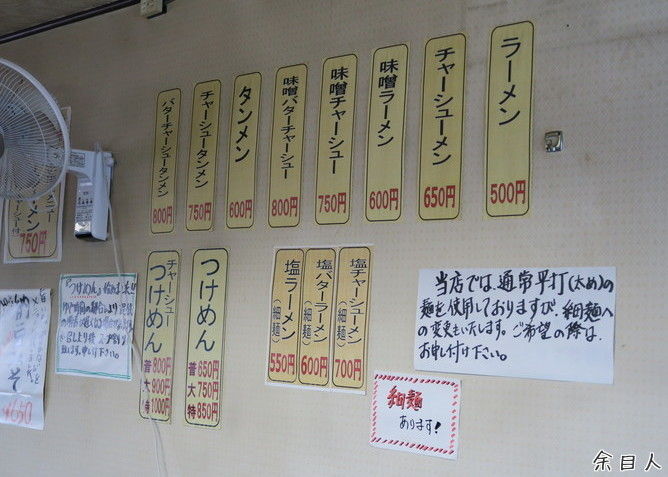 ラーメン
500円
チャーシューメン
650円
味噌ラーメン
600円
味噌チャーシュー
750円
味噌バターチャーシュー
800円
タンメン
600円
チャーシュータンメン
750円
バターチャーシュータンメン
800円
750円
塩チャーシューメン
(細麺)
700円
塩バターラーメン
(細麺)
600円
塩ラーメン
(細麺)
550円
つけめん
普 650円
大 750円
特 850円
チャーシュー
つけめん
普 800円
大 900円
特 1000円
当店では、通常平打(太め)の
麺を使用しておりますが、細麺へ
の変更もいたします。ご希望の際は、
お申し付け下さい。
細麺
あります!
『つけめん』
¥650
余目人